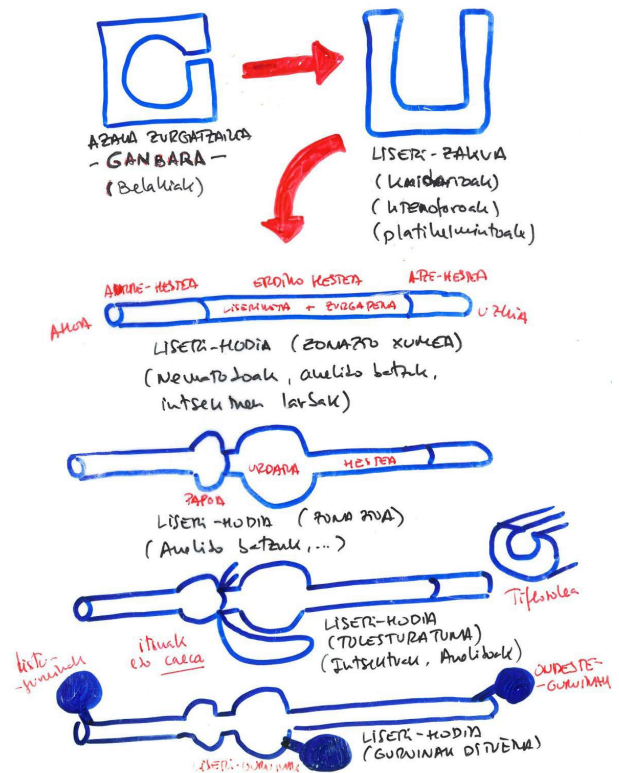 AZALA ZURGATZAILEA
- GANBARA -
(Belakiak)
LISERI-ZAKUA
(knidarioak)
(ktenoforoak)
(platihelmintoak)
AURRE-HESTEA
ERDIKO HESTEA
ATZE-HESTEA
AHOA
LISERIKETA + ZURGAPENA
UZKIA
LISERI-HODIA (ZONAZIO XUMEA)
(Nematodoak, anelido batzuk,
intsektuen larbak)
URDAILA
HESTEA
PAPOA
LISERI-HODIA
(Anelido batzuk,...)
Tiflosolea
LISERI-HODIA
(TOLESTURATUNA)
(Intsektuak, Anelidoak)
itsuak
edo caeca
listu-
-guruinak
ONDESTE-
-GURUINAK
LISERI-HODIA
(GURUINAK DITUENA)
LISERI-GURUINAK